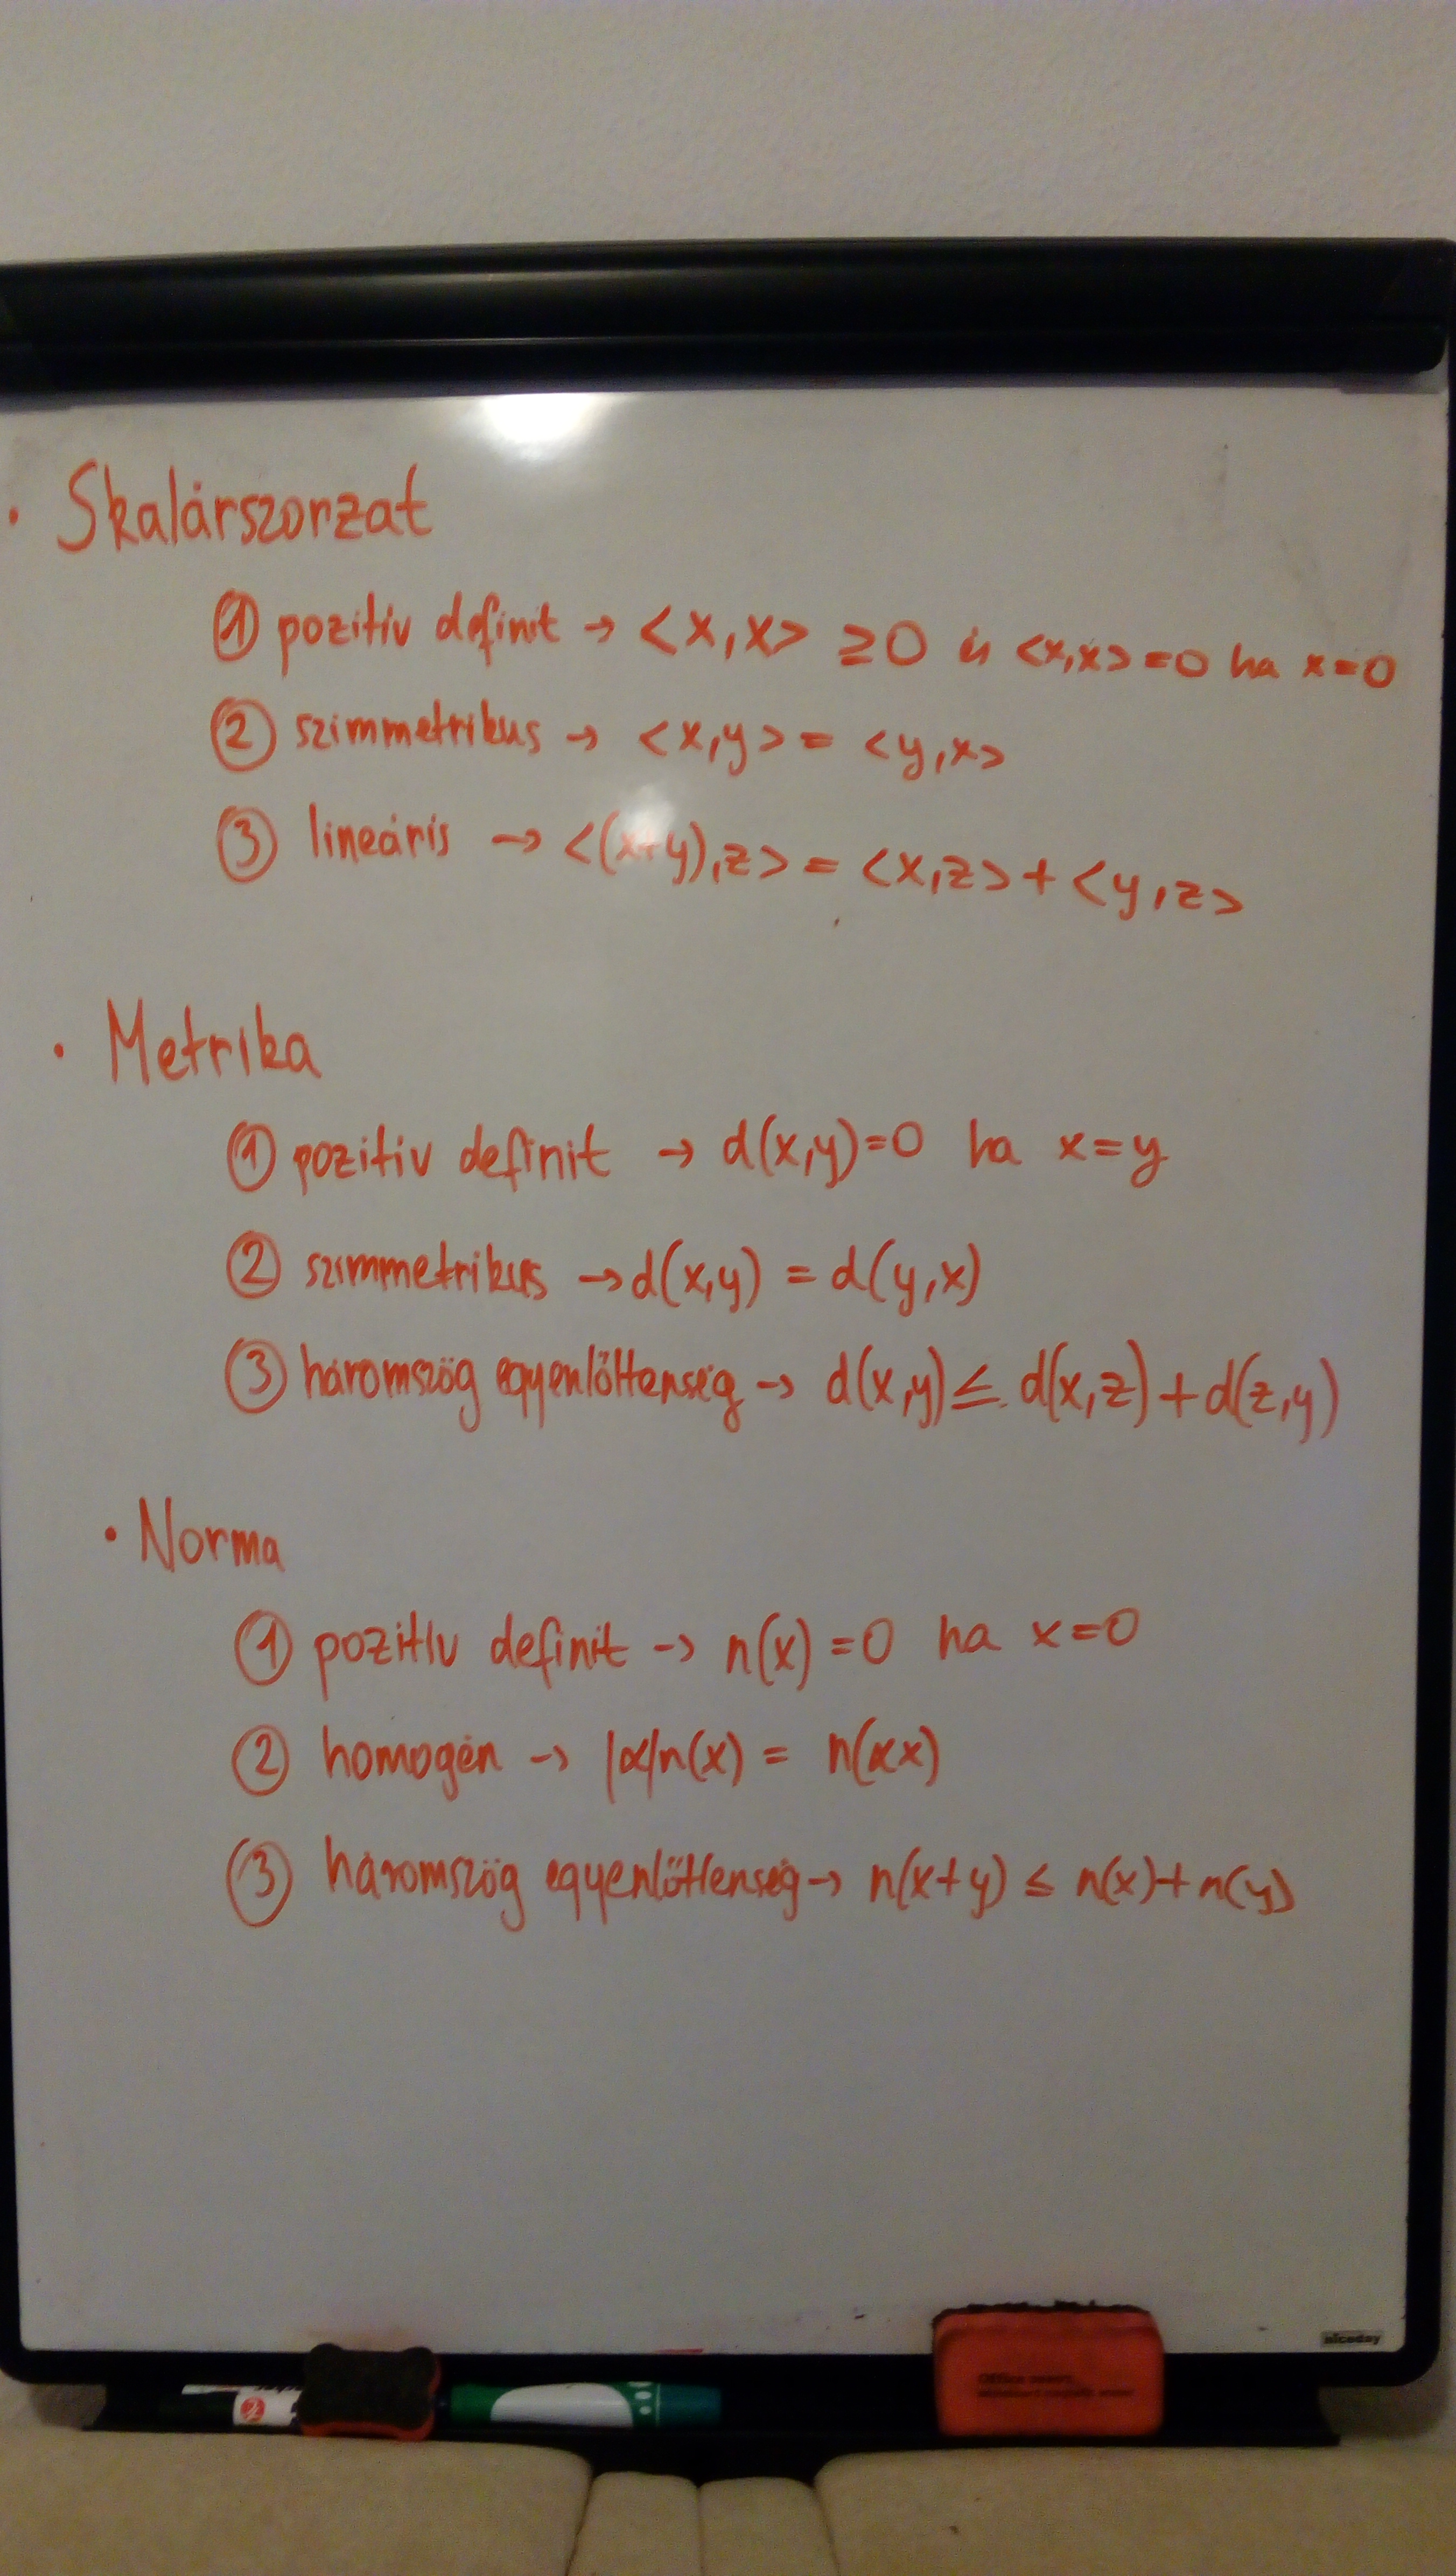 • Skalárszorzat
① pozitiv definit → <x,x> ≥0 és <x,x>=0 ha x=0
② szimmetrikus → <x,y> = <y,x>
③ lineáris → <(x+y),z> = <x,z> + <y,z>
• Metrika
① pozitiv definit → d(x,y)=0 ha x=y
② szimmetrikus → d(x,y) = d(y,x)
③ háromszög egyenlőttenség → d(x,y) ≤ d(x,z) + d(z,y)
• Norma
① pozitiv definit → n(x) =0 ha x=0
② homogén → |α|n(x) = n(αx)
③ háromszög egyenlőttenség → n(x+y) ≤ n(x)+n(y)
niceday